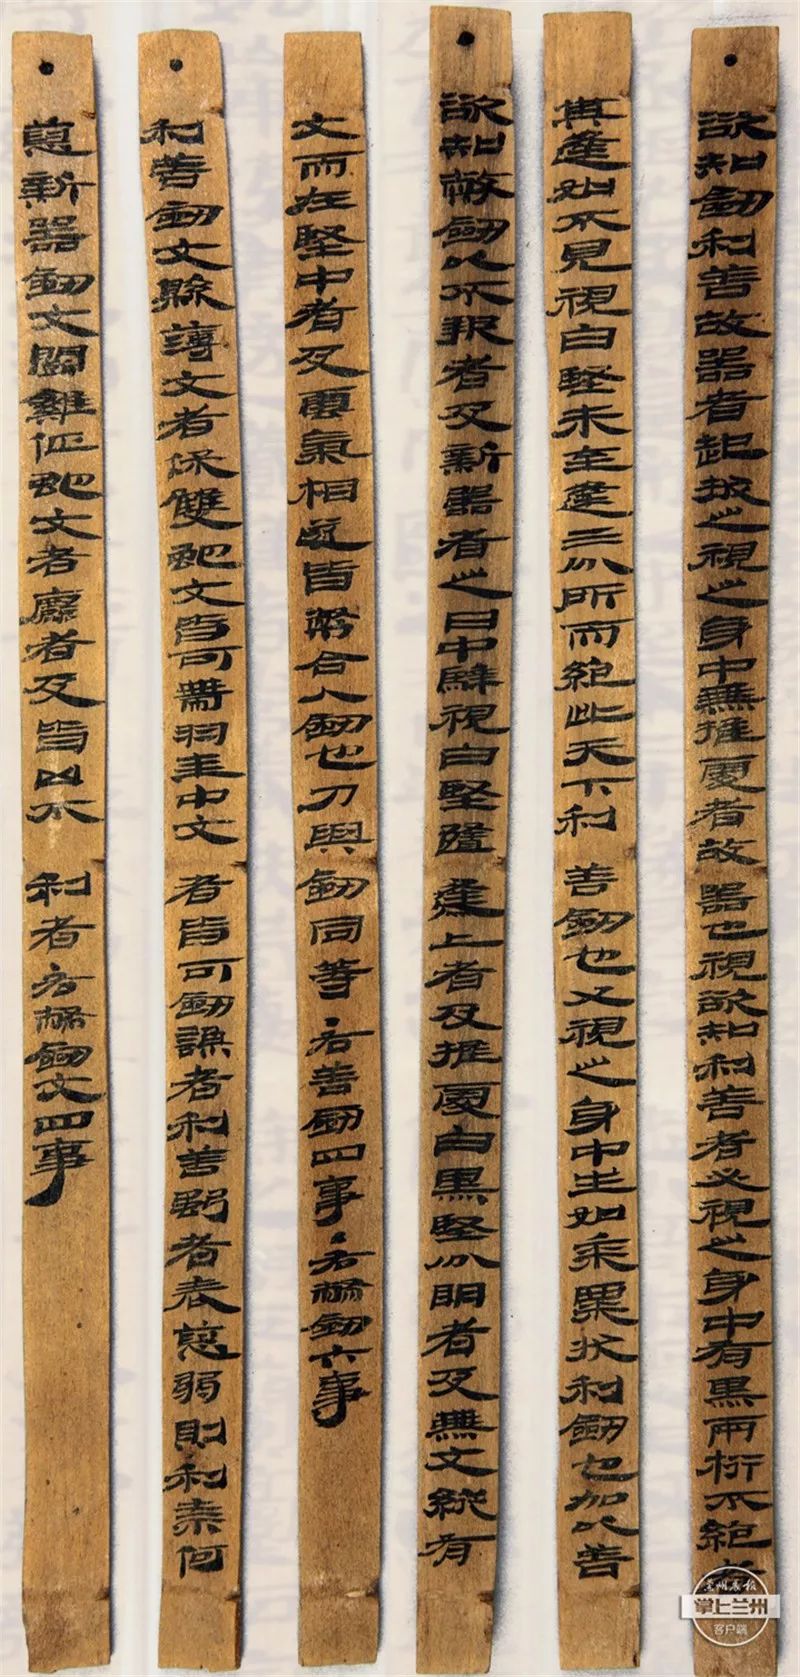 欲知劍利善故器者起拔之視之身中無推處者故器也視欲知利善者必視之身中有黑兩桁不絕者
其逢如不見視白堅未至逢三分所而絕此天下利善劍也又視之身中生如黍粟狀利劍也加以善
欲知幣劍以不報者及新器者之日中騂視白堅隨逢上者及推處白黑堅分明者及無文縱有
文而在堅中者及雲氣相遂皆幣合人劍也刀與劍同等·右善劍四事·右幣劍六事
利善劍文縣薄文者保雙蛇文皆可帶羽圭中文者皆可劍謙者利善強者表恿弱則利奈何
恿新器劍文鬭雞佂蛇文者麤者及皆凶不利者右幣劍文四事
兰州晨报
掌上兰州
客户端